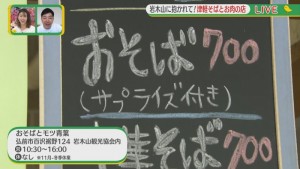 岩木山に抱かれて!津軽そばとお肉の店
LIVE
おそば700
(サプライズ付き)
津軽そば700
おそばとモツ青葉
弘前市百沢裾野124 岩木山観光協会内
営 10:30~16:00
休 なし ※11月-冬季休業